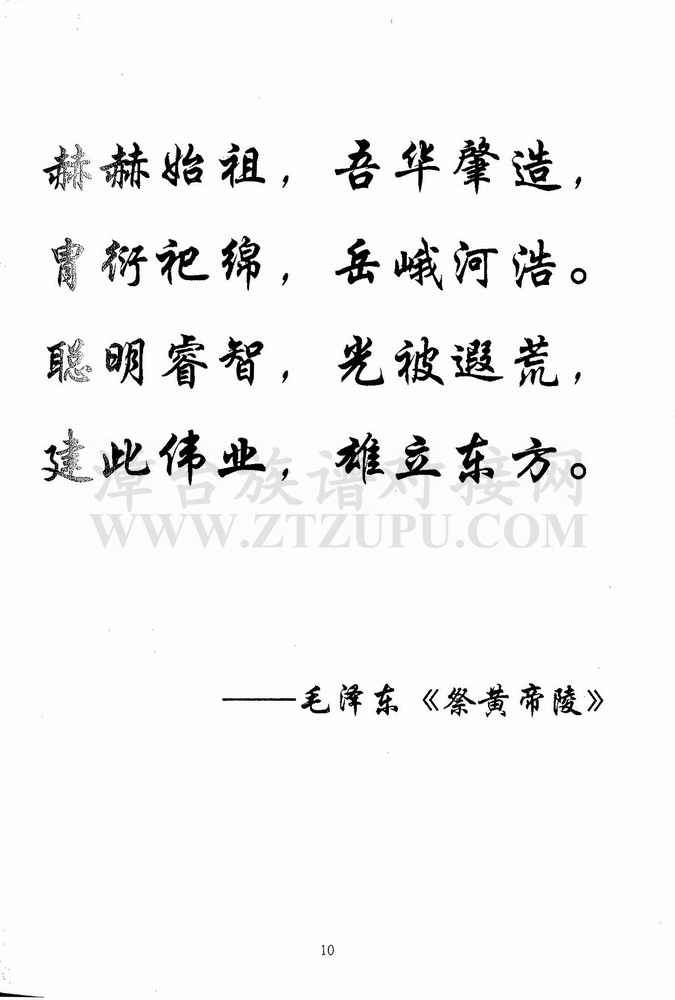 赫赫始祖，吾华肇造，
胄衍祀绵，岳峨河浩。
聪明睿智，光被遐荒，
建此伟业，雄立东方。
漳台族谱对接网
WWW.ZTZUPU.COM
——毛泽东《祭黄帝陵》
10